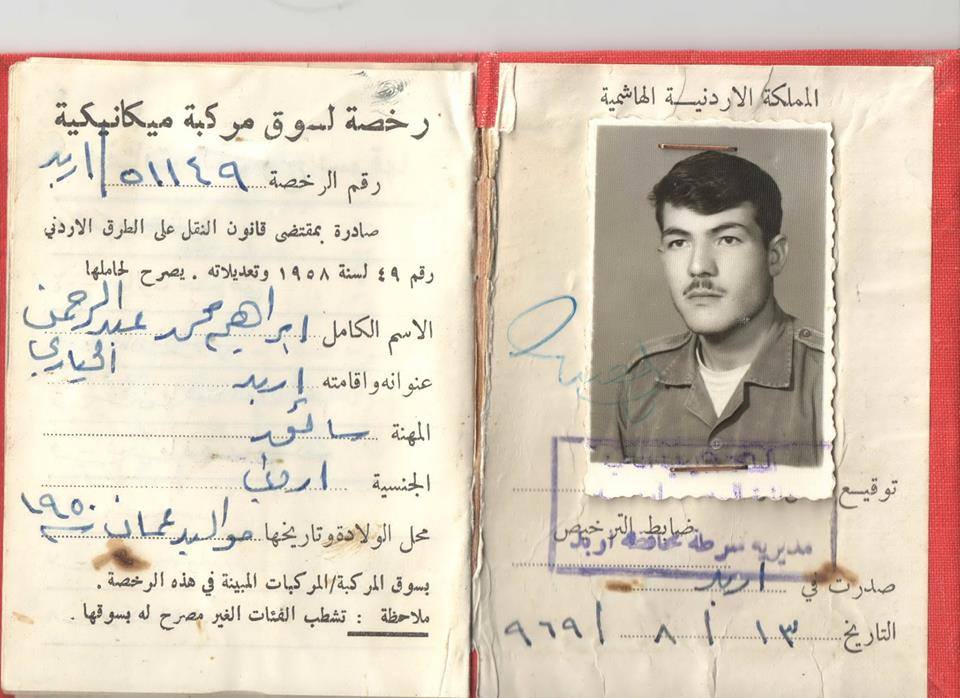 المملكة الاردنيـــة الهاشمية
توقيع
ضابط الترخيص
مديرية شرطة محافظة اربد
صدرت في اربد
التاريخ ١٣ / ٨ / ٩٦٩
رخصة لسوق مركبة ميكانيكية
رقم الرخصة ٥١١٤٩ / اربد
صادرة بمقتضى قانون النقل على الطرق الاردني
رقم ٤٩ لسنة ١٩٥٨ وتعديلاته . يصرح لحاملها
الاسم الكامل ابراهيم محمد عبد الرحمن
الحياري
عنوانه واقامته إربد
المهنة سائق
الجنسية اردني
محل الولادة وتاريخها مواليد عمان ١٩٥٠
بسوق المركبة/المركبات المبينة في هذه الرخصة .
ملاحظة : تشطب الفئات الغير مصرح له بسوقها .